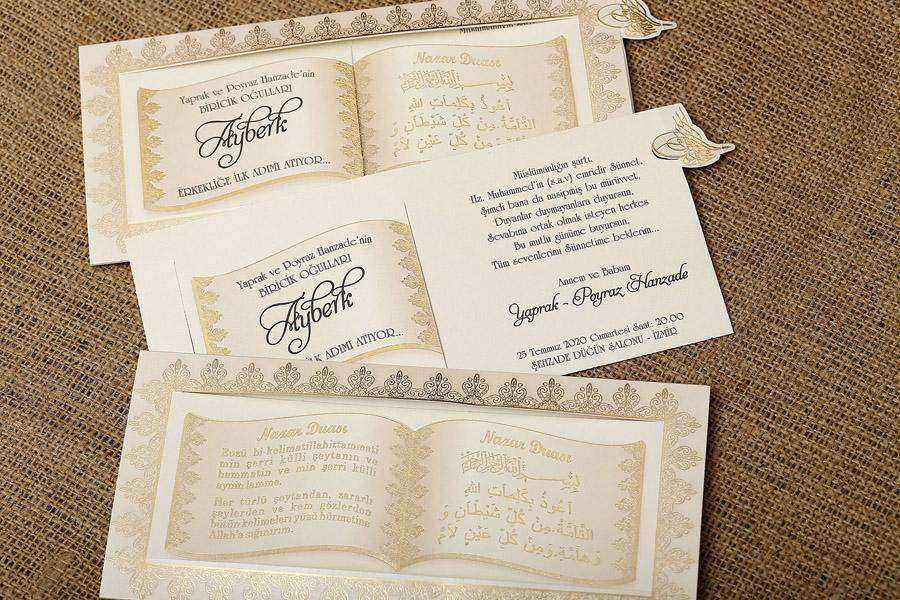 Yaprak ve Poyraz Hanzade'nin
BİRİCİK OĞULLARI
Ayberk
ERKEKLİĞE İLK ADIMI ATIYOR...
Nazar Duası
أعوذ بكلمات الله
التامة من كل شيطان و
Yaprak ve Poyraz Hanzade'nin
BİRİCİK OĞULLARI
Ayberk
İLK ADIMI ATIYOR...
Müslümanlığın şartı,
Hz. Muhammed'in (s.a.v) emridir Sünnet,
Şimdi bana da nasipmiş bu mürüvvet,
Duyanlar duymayanlara duyursun,
Sevabına ortak olmak isteyen herkes
Bu mutlu günüme buyursun,
Tüm sevenlerimi Sünnetime beklerim...
Annem ve Babam
Yaprak - Poyraz Hanzade
25 Temmuz 2020 Cumartesi Saat: 20.00
ŞEHZADE DÜĞÜN SALONU - İZMİR
Nazar Duası
Euzü bi-kelimatillahittammati
min şerri külli şeytanin ve
hammatin ve min şerri külli
aynin lamme.
Her türlü şeytandan, zararlı
şeylerden ve kem gözlerden
bütün kelimeleri yüzü hürmetine
Allah'a sığınırım.
Nazar Duası
أعوذ بكلمات الله
التامة من كل شيطان و
وهامة ومن كل عين لام